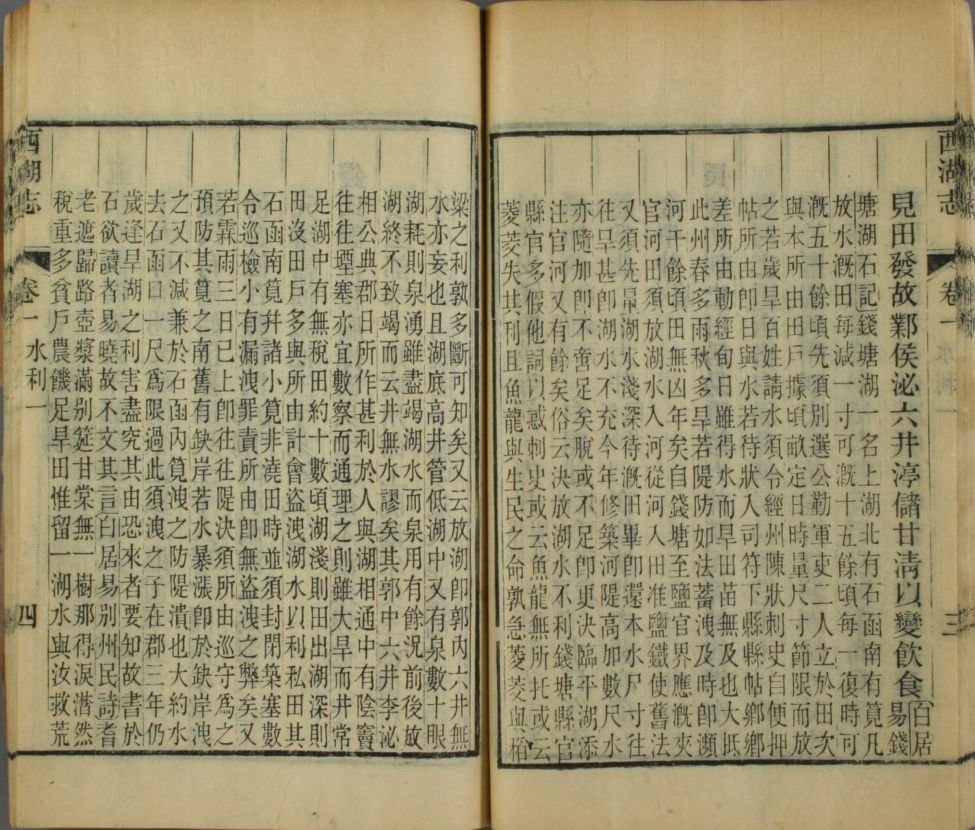 西湖志 卷一 水利 三
見田發故鄴侯泌六井渟儲甘淸以變飲食白居
易錢
塘湖石記錢塘湖一名上湖北有石函南有筧凡
放水溉田每減一寸可溉十五餘頃每一復時可
溉五十餘頃先須別選公勤軍吏二人立於田次
與本所由田戶據頃畝定日時量尺寸節限而放
之若歲旱百姓請水須令經州陳狀刺史自便押
帖所由卽日與水若待狀入司符下縣縣帖鄉鄉
差所由動經旬日雖得水而旱田苗無及也大抵
此州春多雨秋多旱若隄防如法蓄洩及時卽瀕
河千餘頃田無凶年矣自錢塘至鹽官界應溉夾
官河田須放湖水入河從河入田准鹽鐵使舊法
又須先量湖水淺深待溉田畢卽還本水尺寸往
往旱甚卽湖水不充今年修築河隄高加數尺水
亦隨加卽不啻足矣脫或不足卽更決臨平湖添
注官河又有餘矣俗云決放湖水不利錢塘縣官
縣官多假他詞以惑刺史或云魚龍無所托或云
菱茭失其利且魚龍與生民之命孰急菱茭與稻
粱之利孰多斷可知矣又云放湖卽郭內六井無
水亦妄也且湖底高井管低湖中又有泉數十眼
湖耗則泉湧雖盡竭湖水而泉用有餘況前後放
湖終不致竭而云井無水謬矣其郭中六井李泌
相公典郡日所作甚利於人與湖相通中有陰竇
往往堙塞亦宜數察而通理之則雖大旱而井常
足湖中有無稅田約十數頃湖淺則田出湖深則
田沒田戶多與所由計會盜洩湖水以利私田其
石函南筧幷諸小筧非澆田時並須封閉築塞數
令巡檢小有漏洩罪責所由卽無盜洩之弊矣又
若霖雨三日已上卽往往隄決須所由巡守爲之
預防其筧之南舊有缺岸若水暴漲卽於缺岸洩
之又不減兼於石函內筧洩之防隄潰也大約水
去石函口一尺爲限過此須洩之予在郡三年仍
歲逢旱湖之利害盡究其由恐來者要知故書於
石欲讀者易曉故不文其言白居易別州民詩耆
老遮歸路壺漿滿別筵甘棠無一樹那得淚潸然
稅重多貧戶農饑足旱田惟留一湖水與汝救荒
西湖志 卷一 水利一 四